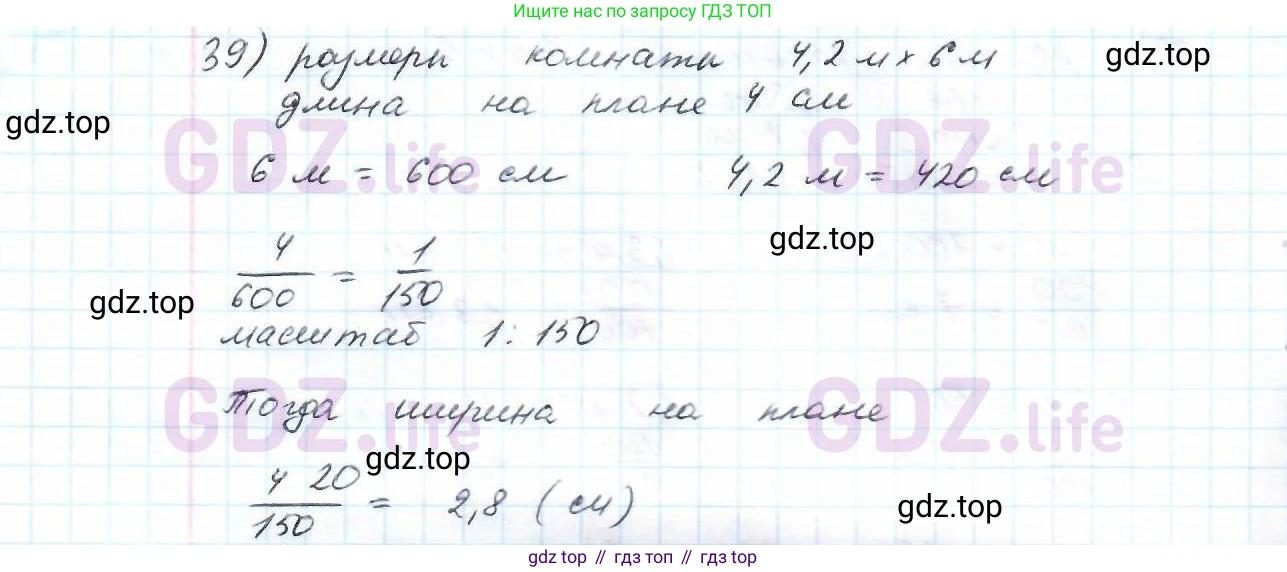 Ищите нас по запросу ГДЗ ТОП
39) размеры комнаты 4,2 м × 6 м
gdz.top
длина на плане 4 см
gdz.top
GDZ.life GDZ.life
6 м = 600 см 4,2 м = 420 см
gdz.top
4/600 = 1/150
gdz.top
масштаб 1 : 150
GDZ.life GDZ.life
Тогда ширина на плане
gdz.top
420/150 = 2,8 (см)
gdz.top
gdz.top // гдз топ // gdz.top // гдз top